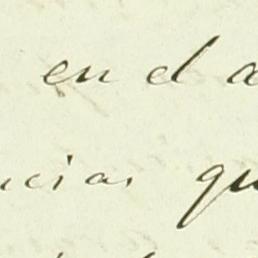 en el a
ncias qu